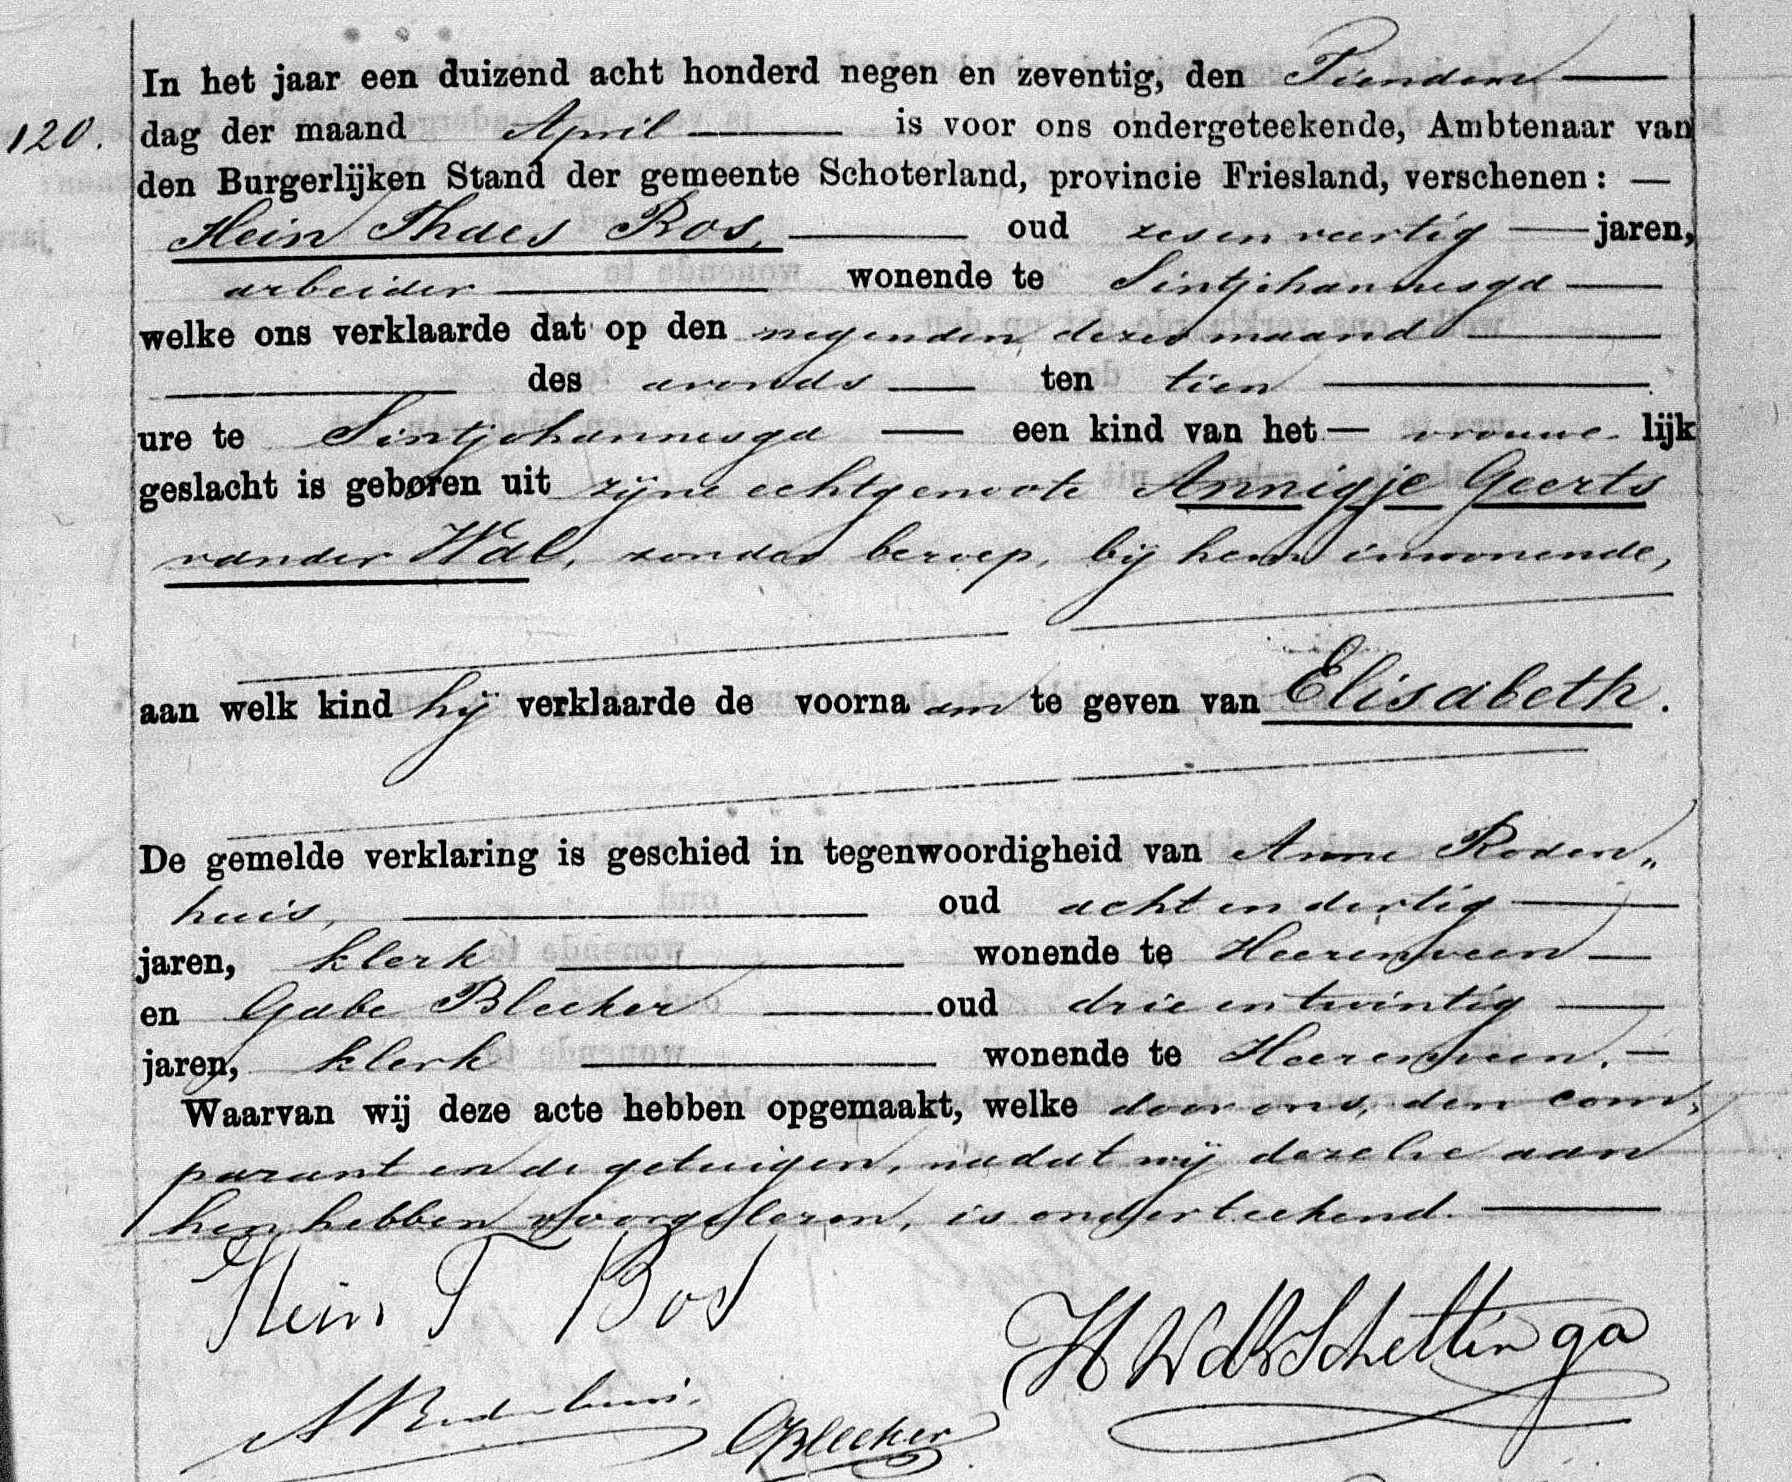 In het jaar een duizend acht honderd negen en zeventig, den Tienden
120. dag der maand April is voor ons ondergeteekende, Ambtenaar van
den Burgerlijken Stand der gemeente Schoterland, provincie Friesland, verschenen: —
Hein Thaes Bos, oud zesenveertig jaren,
arbeider wonende te Sintjohannesga
welke ons verklaarde dat op den negenden dezer maand
des avonds ten tien
ure te Sintjohannesga een kind van het vrouwe- lijk
geslacht is geboren uit zijne echtgenoote Annigje Geerts
vander Wal, zonder beroep, bij hem inwonende,
aan welk kind hij verklaarde de voorna am te geven van Elisabeth.
De gemelde verklaring is geschied in tegenwoordigheid van Anne Roden„
huis, oud acht en dertig
jaren, klerk wonende te Heerenveen
en Gabe Bleeker oud drie en twintig
jaren, klerk wonende te Heerenveen.
Waarvan wij deze acte hebben opgemaakt, welke door ons, den com„
parant en de getuigen, nadat wij dezelve aan
hen hebben voorgelezen, is onderteekend.
Hein T Bos
HWdBSchettinga
A Rodenhuis.
GBleeker